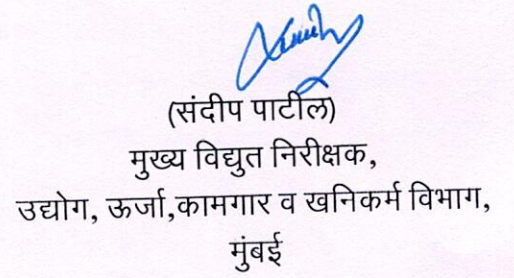 (संदीप पाटील)
मुख्य विद्युत निरीक्षक,
उद्योग, ऊर्जा,कामगार व खनिकर्म विभाग,
मुंबई